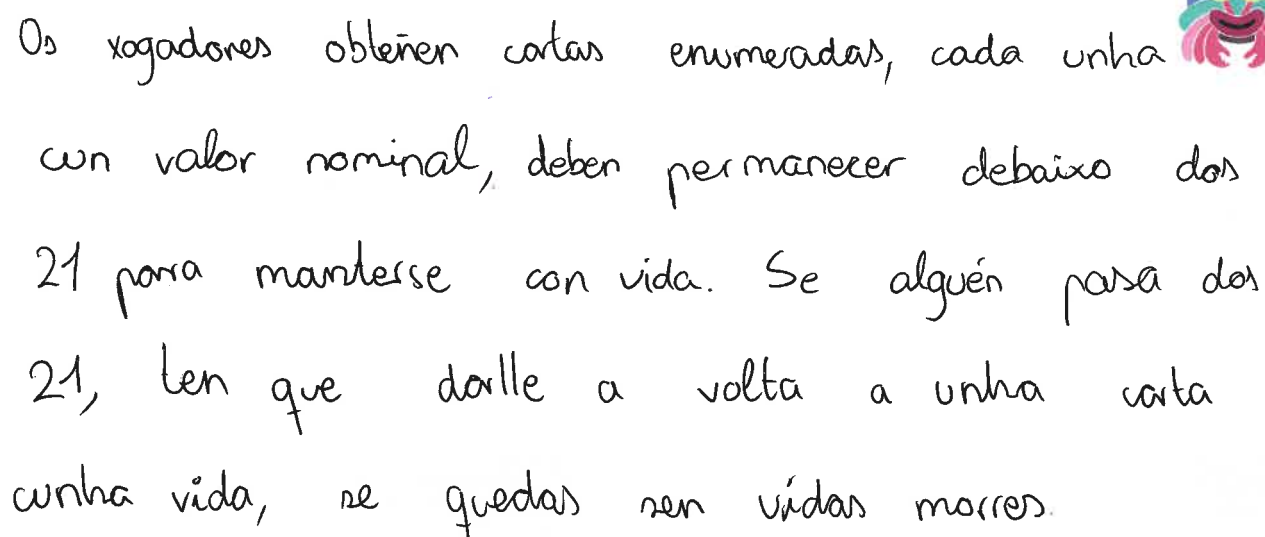 Os xogadores obteñen cartas enumeradas, cada unha
cun valor nominal, deben permanecer debaixo dos
21 para manterse con vida. Se alguén pasa dos
21, ten que darlle a volta a unha carta
cunha vida, se quedas sen vidas morres.